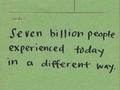 Seven billion people
experienced today
in a different way.